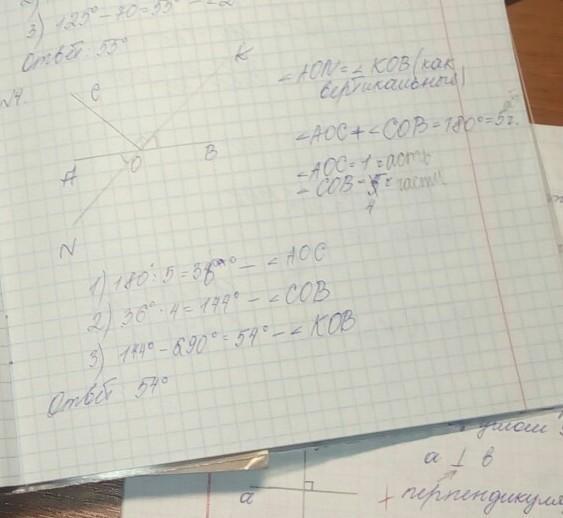 3) 125° - 70 = 55° - ∠2
Ответ: 55°
№4.
C
K
A
O
B
N
∠AON = ∠KOB (как
вертикальные)
∠AOC + ∠COB = 180° = 5ч.
∠AOC = 1 часть
∠COB - 4 части
1) 180° : 5 = 36° - ∠AOC
2) 36° · 4 = 144° - ∠COB
3) 144° - 90° = 54° - ∠KOB
Ответ 54°
a ⊥ b
a
перпендикуля